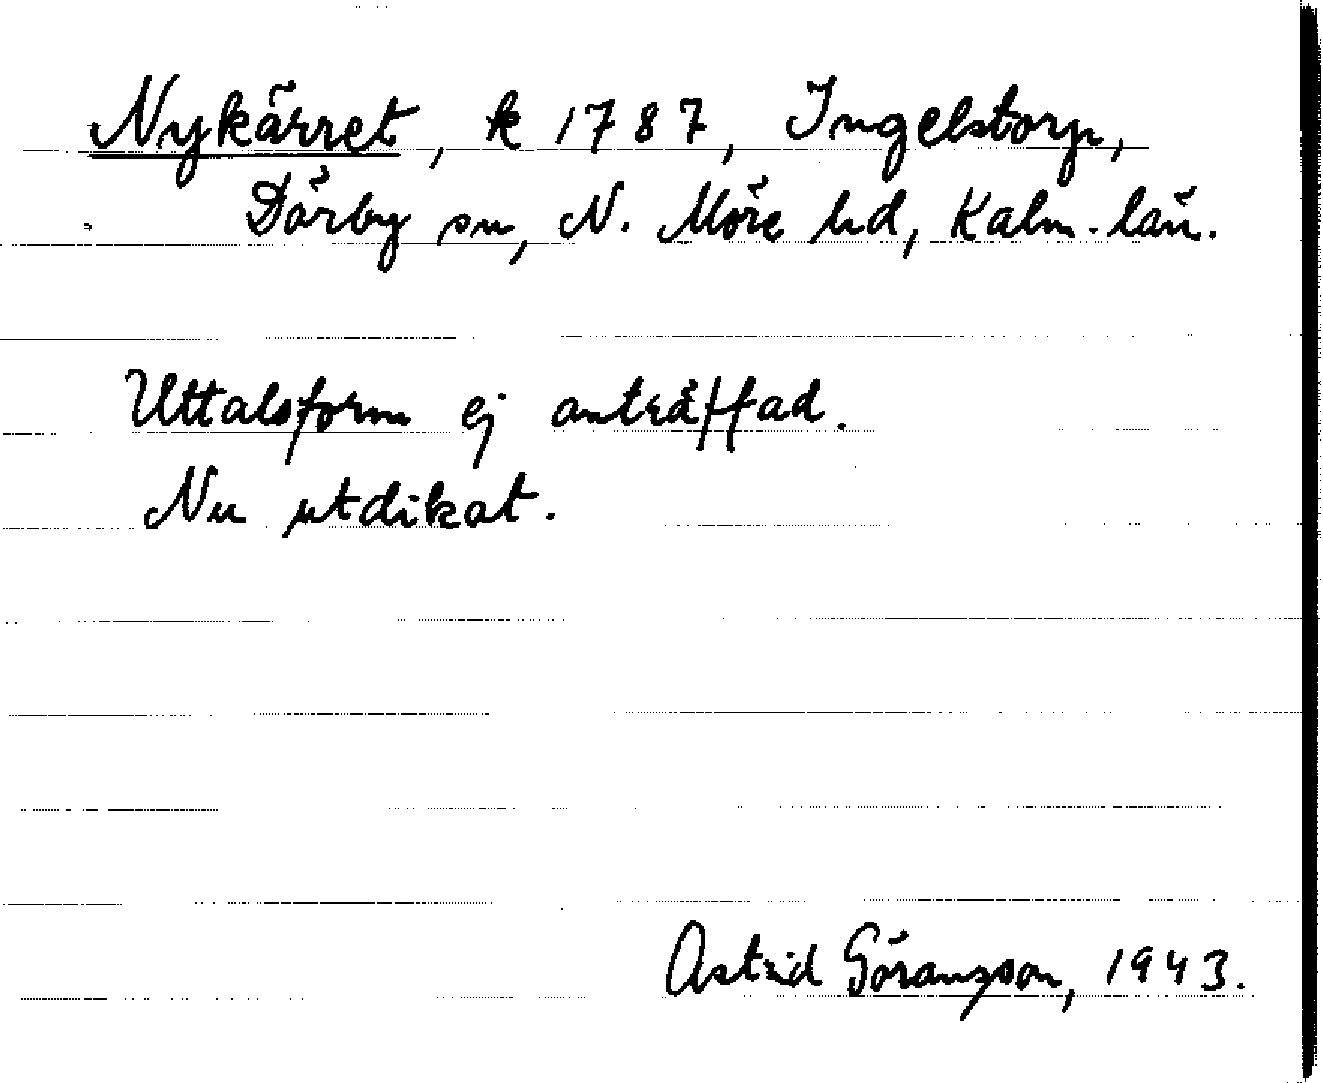 Nykärret, k 1787, Ingelstorp,
Dörby sn, N. Möre hd, Kalm. län.
Uttalsform ej anträffad.
Nu utdikat.
Astrid Göransson, 1943.